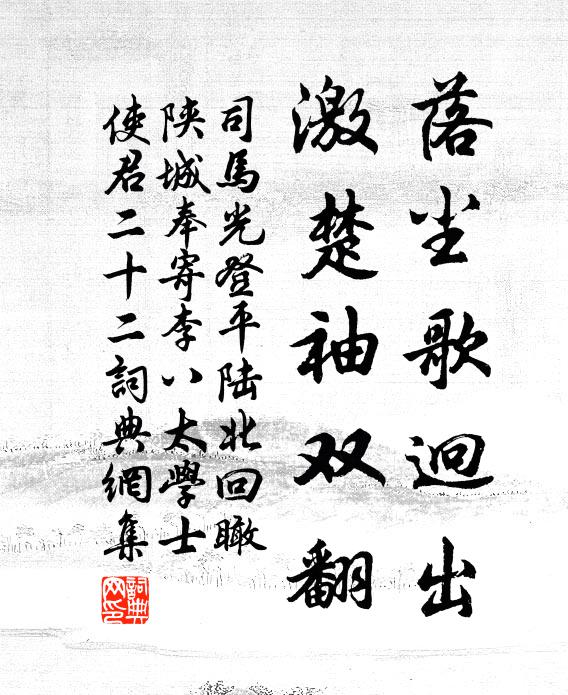 落尘歌迥出
激楚袖双翻
司馬光登平陆北回瞰
陕城奉寄李八太學士
使君二十二詞典網集
詞典
网印